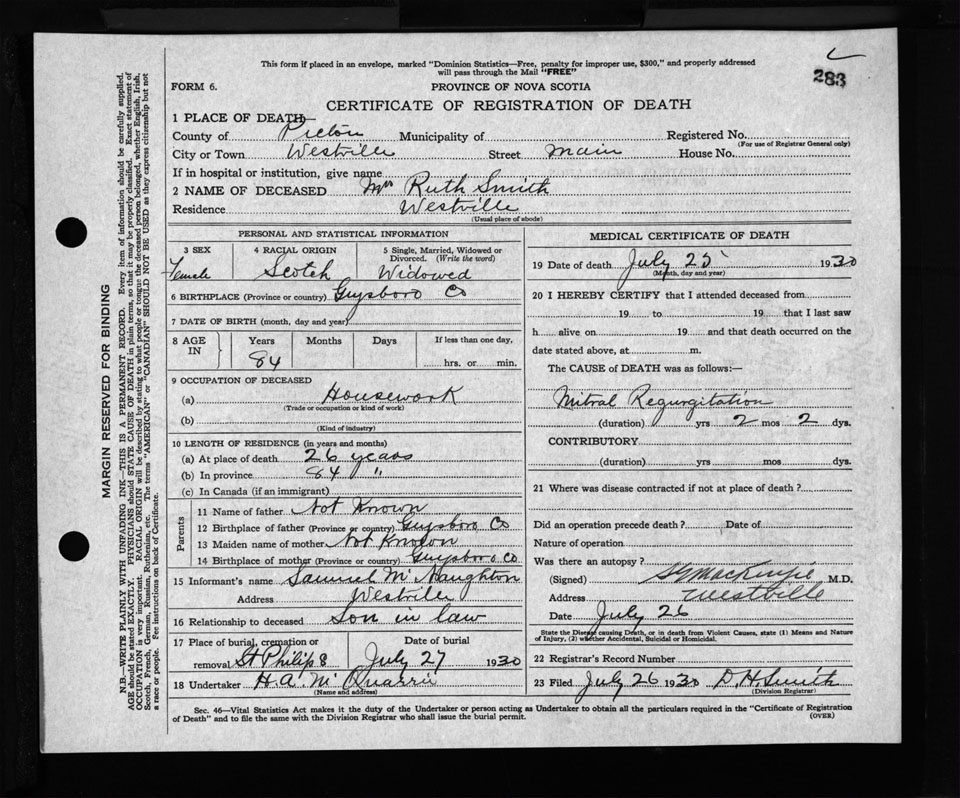 283
This form if placed in an envelope, marked "Dominion Statistics—Free, penalty for improper use, $300," and properly addressed
will pass through the Mail "FREE"
FORM 6.
PROVINCE OF NOVA SCOTIA
CERTIFICATE OF REGISTRATION OF DEATH
1 PLACE OF DEATH—
County of Pictou Municipality of Registered No.
(For use of Registrar General only)
City or Town Westville Street Main House No.
If in hospital or institution, give name
2 NAME OF DECEASED Mrs Ruth Smith
Residence Westville
(Usual place of abode)
PERSONAL AND STATISTICAL INFORMATION
3 SEX 4 RACIAL ORIGIN 5 Single, Married, Widowed or
Divorced. (Write the word)
Female Scotch Widowed
6 BIRTHPLACE (Province or country) Guysboro Co
7 DATE OF BIRTH (month, day and year)
8 AGE IN Years Months Days If less than one day,
84 hrs. or min.
9 OCCUPATION OF DECEASED
(a) Housework
(Trade or occupation or kind of work)
(b)
(Kind of industry)
10 LENGTH OF RESIDENCE (in years and months)
(a) At place of death 26 years
(b) In province 84 "
(c) In Canada (if an immigrant)
Parents
11 Name of father Not Known
12 Birthplace of father (Province or country) Guysboro Co
13 Maiden name of mother Not Known
14 Birthplace of mother (Province or country) Guysboro Co
15 Informant's name Samuel McNaughton
Address Westville
16 Relationship to deceased Son in law
17 Place of burial, cremation or removal St Philips
Date of burial July 27 1930
18 Undertaker H.A. McQuarrie
(Name and address)
MEDICAL CERTIFICATE OF DEATH
19 Date of death July 25 1930
(Month, day and year)
20 I HEREBY CERTIFY that I attended deceased from
19 to 19 that I last saw
h alive on 19 and that death occurred on
date stated above, at m.
The CAUSE of DEATH was as follows:—
Mitral Regurgitation
(duration) yrs 2 mos 2 dys.
CONTRIBUTORY
(duration) yrs mos dys.
21 Where was disease contracted if not at place of death?
Did an operation precede death? Date of
Nature of operation
Was there an autopsy?
(Signed) MacKenzie M.D.
Address Westville
Date July 26
State the Disease causing Death, or in death from Violent Causes, state (1) Means and Nature
of Injury, (2) whether Accidental, Suicidal or Homicidal.
22 Registrar's Record Number
23 Filed July 26 1930 D.H. Smith
(Division Registrar)
Sec. 46—Vital Statistics Act makes it the duty of the Undertaker or person acting as Undertaker to obtain all the particulars required in the "Certificate of Registration
of Death" and to file the same with the Division Registrar who shall issue the burial permit.
(OVER)
MARGIN RESERVED FOR BINDING
N.B.—WRITE PLAINLY WITH UNFADING INK—THIS IS A PERMANENT RECORD. Every item of information should be carefully supplied.
AGE should be stated EXACTLY. PHYSICIANS should STATE CAUSE OF DEATH in plain terms, so that it may be properly classified. Exact statement of
OCCUPATION is very important. RACIAL ORIGIN will be described by stating to what people or tongue the deceased person belonged, whether English, Irish,
Scotch, French, German, Russian, Ruthenian, etc. The terms "AMERICAN" or "CANADIAN" SHOULD NOT BE USED as they express citizenship but not
a race or people. See instructions on back of Certificate.